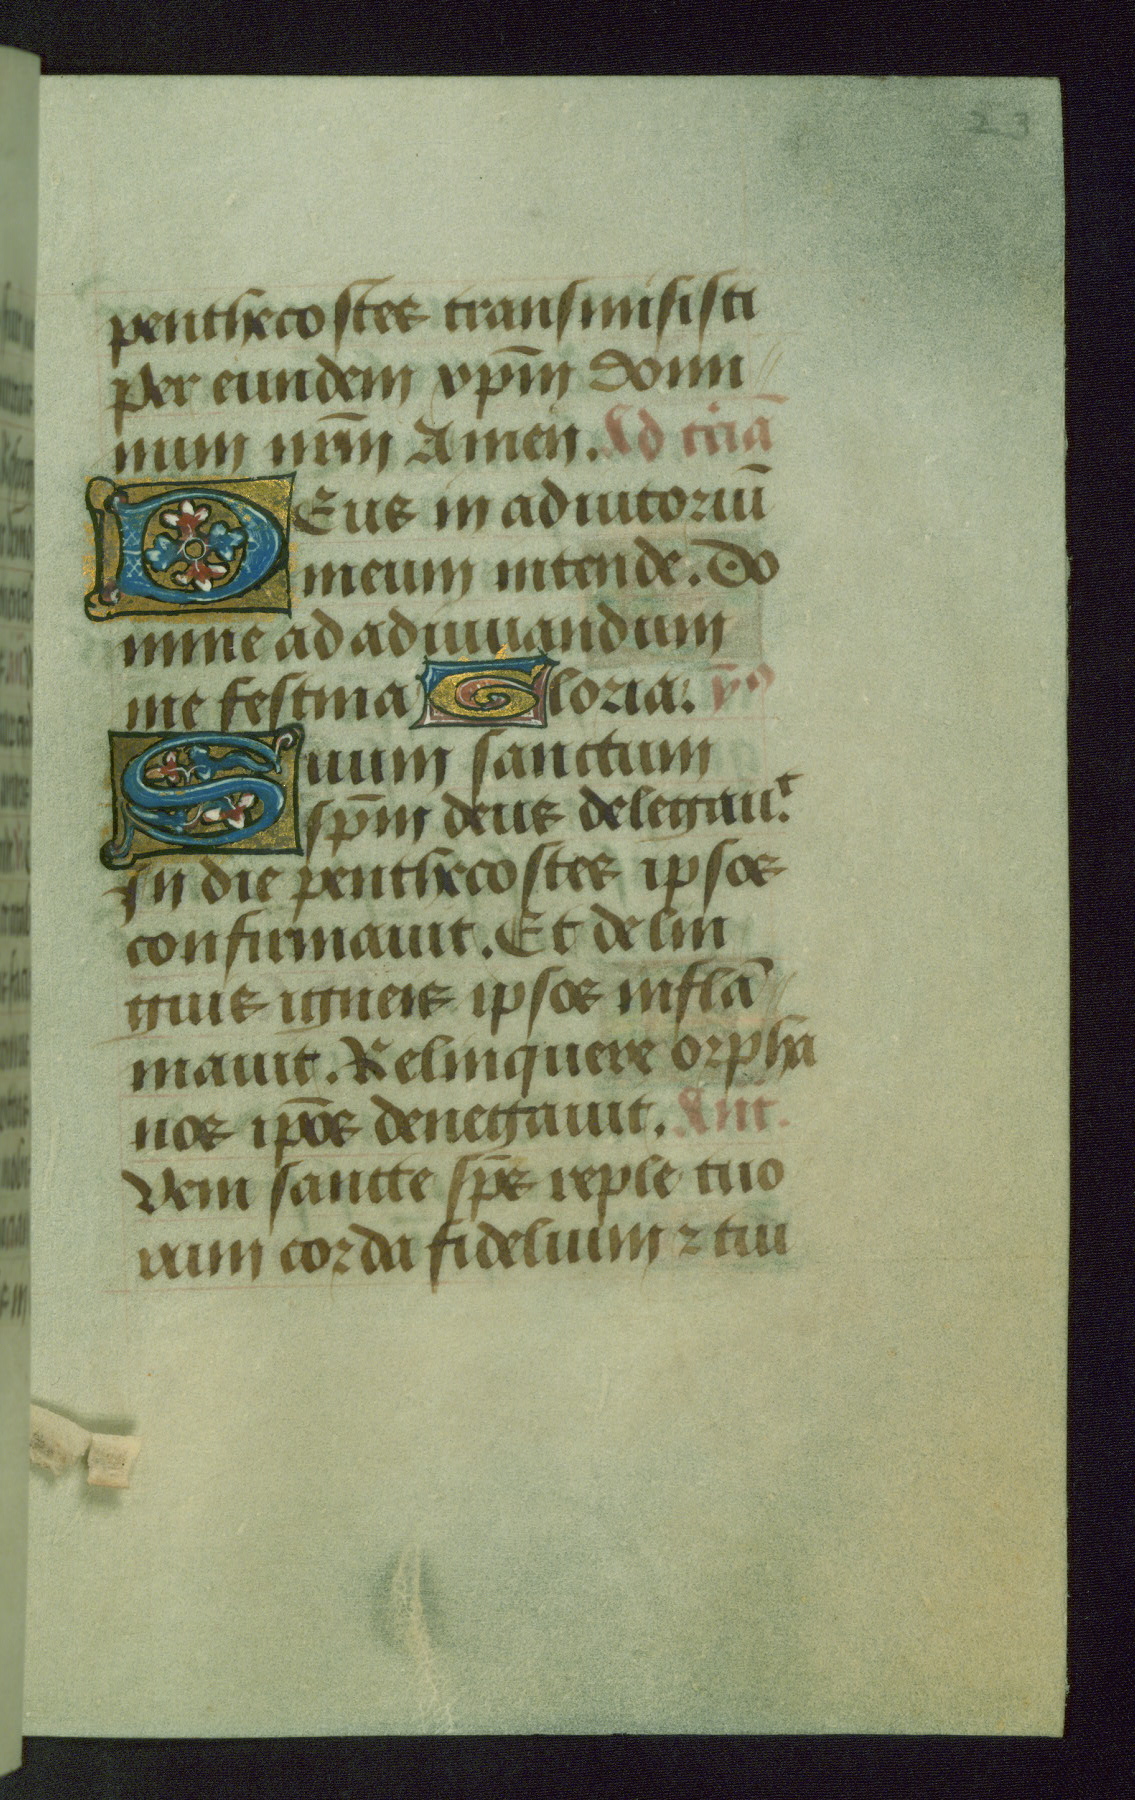 23
penthecostes transmisisti
per eundem xp̄m domi
num nr̄m Amen. Ad terciā
Deus in adiutoriū
meum intende. Do
mine ad adiuuandum
me festina Gloria. ȳp̄
Suum sanctum
sp̄m deus delegauit
In die penthecostes ipsos
confirmauit. Et de lin
guis igneis ipsos inflā
mauit. Relinquere orpha
nos ip̄os denegauit. Ant.
Veni sancte sp̄s reple tuo
rum corda fidelium ⁊ tui